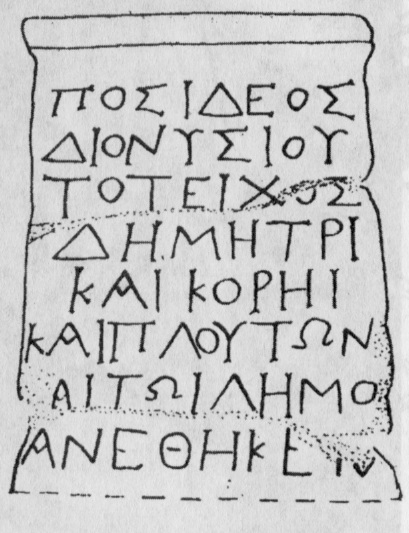 ΠΟΣΙΔΕΟΣ
ΔΙΟΝΥΣΙΟΥ
ΤΟΤΕΙΧΟΣ
ΔΗΜΗΤΡΙ
ΚΑΙ ΚΟΡΗΙ
ΚΑΙΠΛΟΥΤΩΝ
ΑΙΤΩΙΛΗΜΟ
ΑΝΕΘΗΚΕΝ